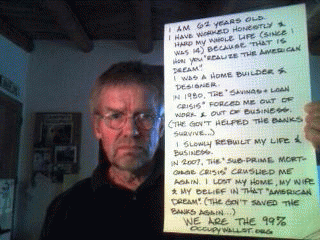 I AM 62 YEARS OLD.
I HAVE WORKED HONESTLY &
HARD MY WHOLE LIFE (SINCE I
WAS 14) BECAUSE THAT IS
HOW YOU "REALIZE THE AMERICAN
DREAM."
I WAS A HOME BUILDER &
DESIGNER.
IN 1980, THE "SAVINGS & LOAN
CRISIS" FORCED ME OUT OF
WORK & OUT OF BUSINESS.
(THE GOV'T HELPED THE BANKS
SURVIVE...)
I SLOWLY REBUILT MY LIFE &
BUSINESS.
IN 2007, THE "SUB-PRIME MORT-
GAGE CRISIS" CRUSHED ME
AGAIN. I LOST MY HOME, MY WIFE
& MY BELIEF IN THAT "AMERICAN
DREAM". (THE GOV'T SAVED THE
BANKS AGAIN...)
WE ARE THE 99%
OCCUPYWALLST.ORG